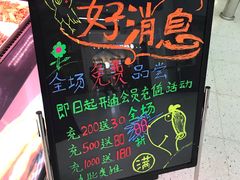 好消息
全场免费品尝
即日起开通会员充值活动
充200送30
充500送80
充1000送180
全场
折
满